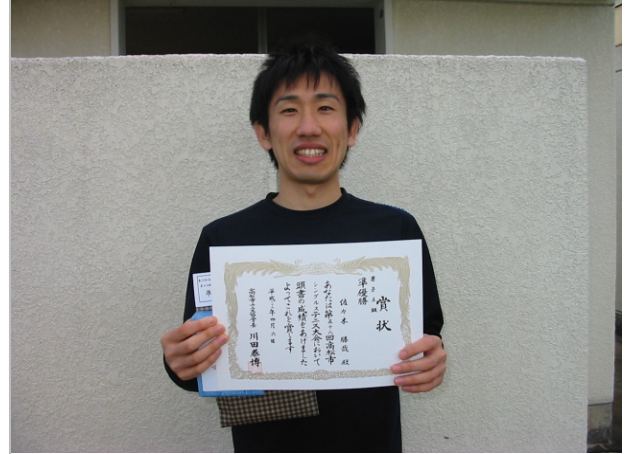 賞状
男子A級
準優勝
佐々木 勝哉 殿
あなたは第五十 回高松市
シングルステニス大会において
頭書の成績をあげました
よってこれを賞します
平成 年四月六日
高松市 川田泰博